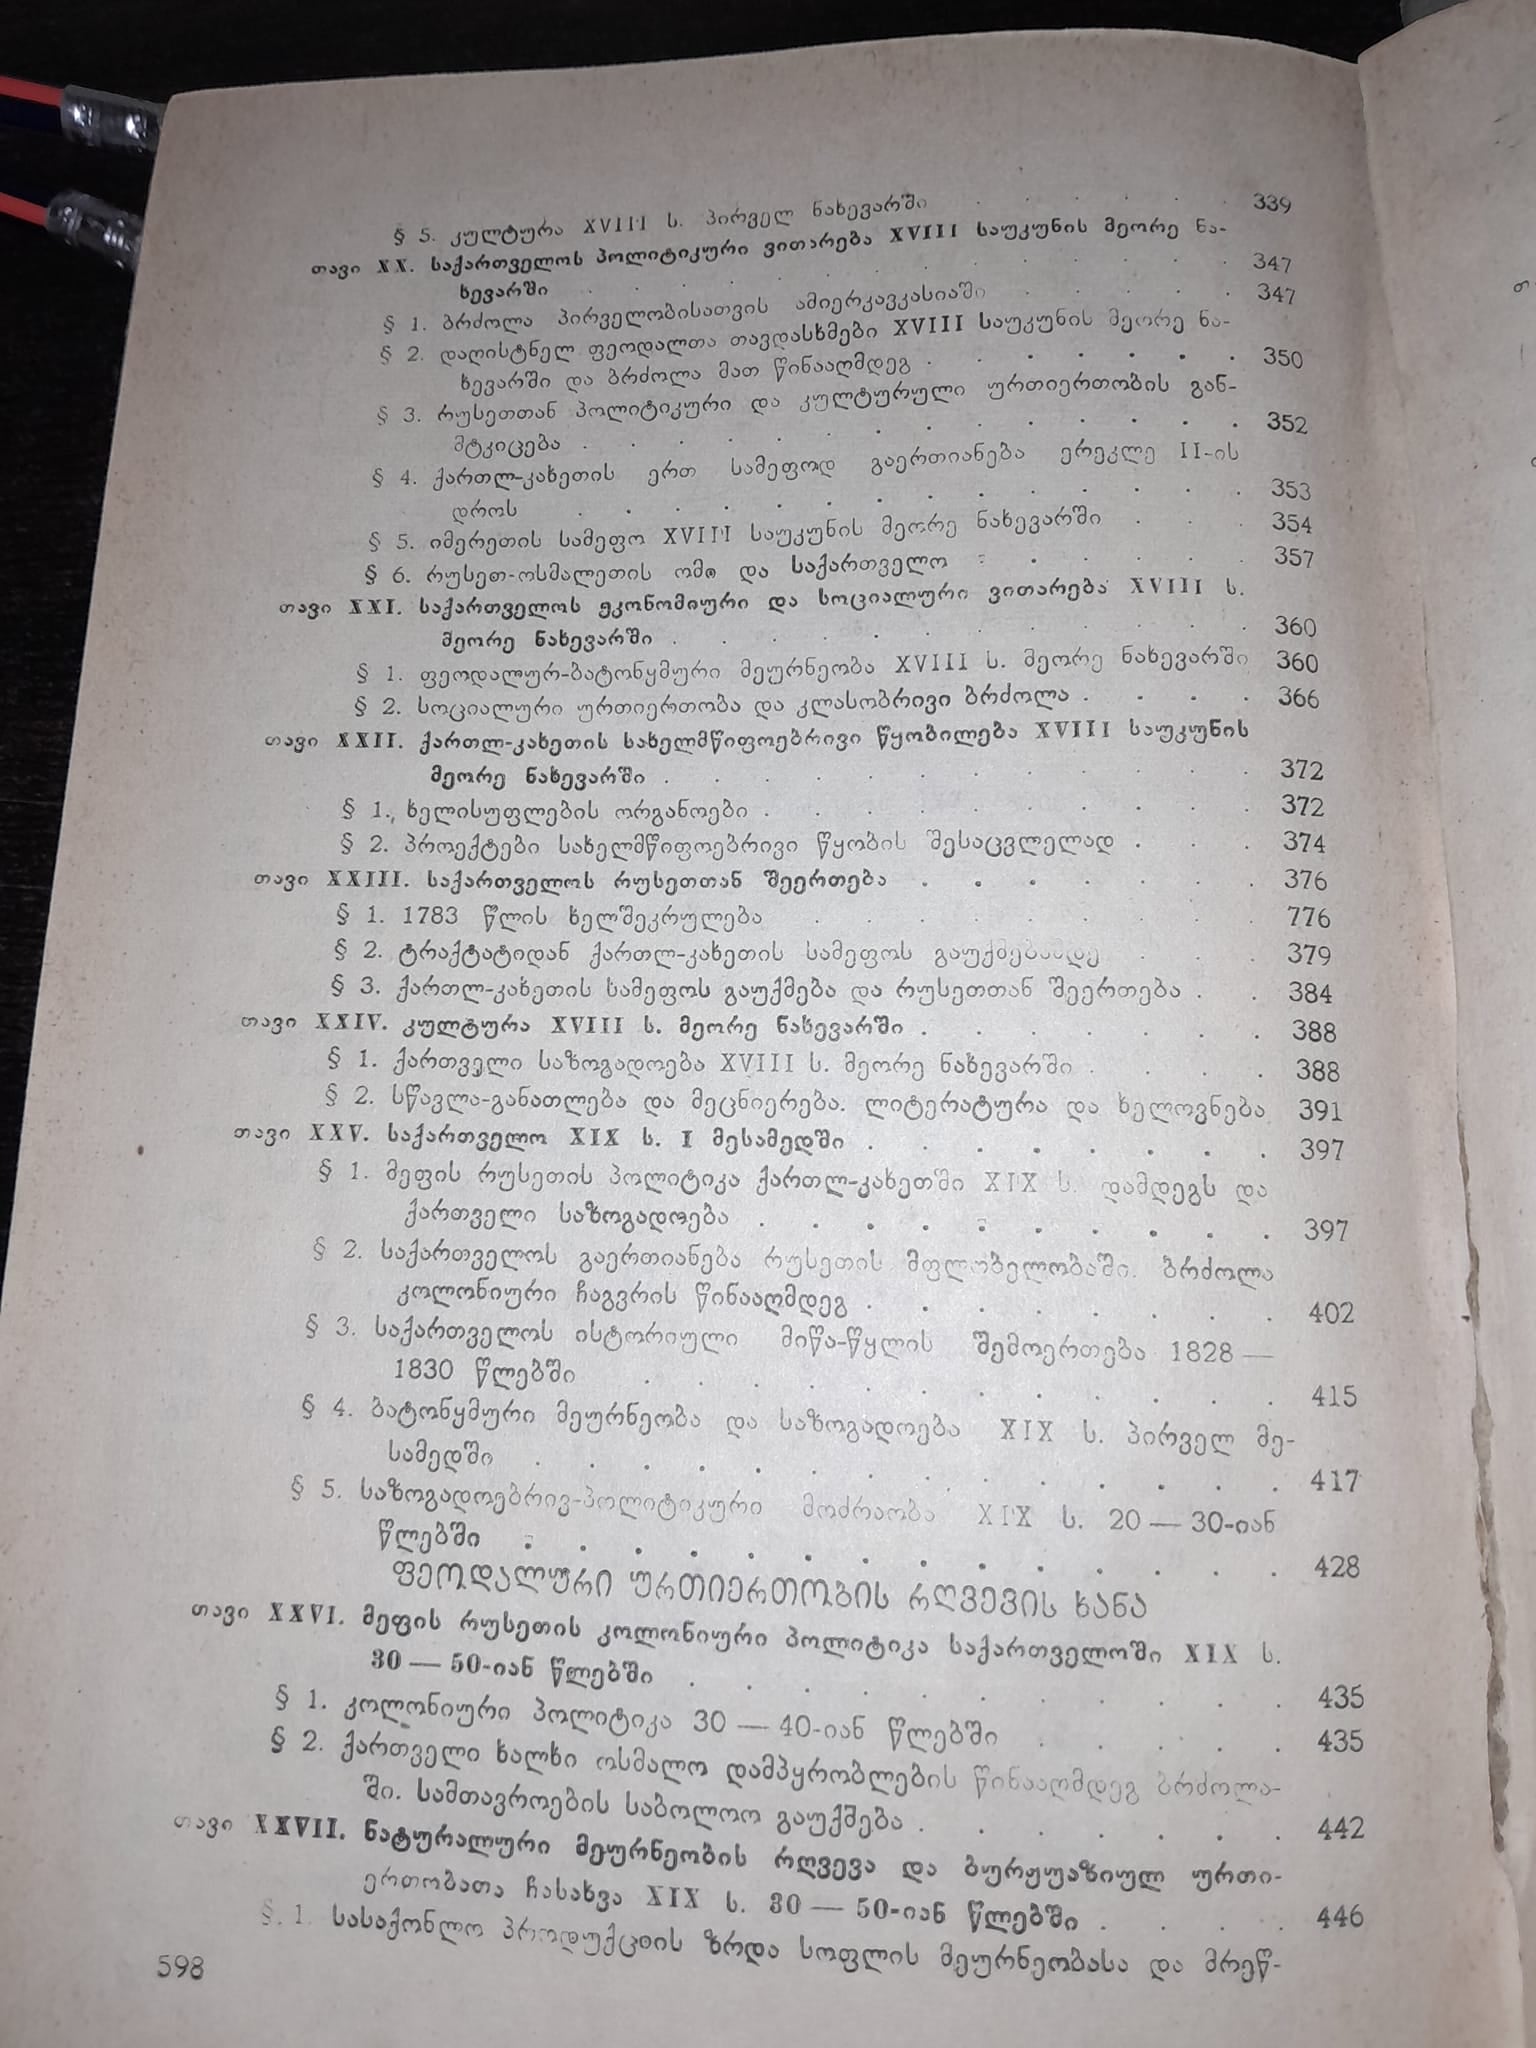 § 5. კულტურა XVIII ს. პირველ ნახევარში . . . . . . 339
თავი XX. საქართველოს პოლიტიკური ვითარება XVIII საუკუნის მეორე ნა-
ხევარში . . . . . . . . . . . 347
§ 1. ბრძოლა პირველობისათვის ამიერკავკასიაში . . . . . 347
§ 2. დაღისტნელ ფეოდალთა თავდასხმები XVIII საუკუნის მეორე ნა-
ხევარში და ბრძოლა მათ წინააღმდეგ . . . . . . . 350
§ 3. რუსეთთან პოლიტიკური და კულტურული ურთიერთობის გან-
მტკიცება . . . . . . . . . . . . . . 352
§ 4. ქართლ-კახეთის ერთ სამეფოდ გაერთიანება ერეკლე II-ის
დროს . . . . . . . . . . . . . . 353
§ 5. იმერეთის სამეფო XVIII საუკუნის მეორე ნახევარში . . . 354
§ 6. რუსეთ-ოსმალეთის ომი და საქართველო . . . . . . 357
თავი XXI. საქართველოს ეკონომიური და სოციალური ვითარება XVIII ს.
მეორე ნახევარში . . . . . . . . . . . . 360
§ 1. ფეოდალურ-ბატონყმური მეურნეობა XVIII ს. მეორე ნახევარში 360
§ 2. სოციალური ურთიერთობა და კლასობრივი ბრძოლა . . . . 366
თავი XXII. ქართლ-კახეთის სახელმწიფოებრივი წყობილება XVIII საუკუნის
მეორე ნახევარში . . . . . . . . . . . . 372
§ 1. ხელისუფლების ორგანოები . . . . . . . . . . 372
§ 2. პროექტები სახელმწიფოებრივი წყობის შესაცვლელად . . . 374
თავი XXIII. საქართველოს რუსეთთან შეერთება . . . . . . . 376
§ 1. 1783 წლის ხელშეკრულება . . . . . . . . . 776
§ 2. ტრაქტატიდან ქართლ-კახეთის სამეფოს გაუქმებამდე . . . 379
§ 3. ქართლ-კახეთის სამეფოს გაუქმება და რუსეთთან შეერთება . . 384
თავი XXIV. კულტურა XVIII ს. მეორე ნახევარში . . . . . . . 388
§ 1. ქართველი საზოგადოება XVIII ს. მეორე ნახევარში . . . . 388
§ 2. სწავლა-განათლება და მეცნიერება. ლიტერატურა და ხელოვნება 391
თავი XXV. საქართველო XIX ს. I მესამედში . . . . . . . . 397
§ 1. მეფის რუსეთის პოლიტიკა ქართლ-კახეთში XIX ს. დამდეგს და
ქართველი საზოგადოება . . . . . . . . . . 397
§ 2. საქართველოს გაერთიანება რუსეთის მფლობელობაში. ბრძოლა
კოლონიური ჩაგვრის წინააღმდეგ . . . . . . . . 402
§ 3. საქართველოს ისტორიული მიწა-წყლის შემოერთება 1828 —
1830 წლებში . . . . . . . . . . . . 415
§ 4. ბატონყმური მეურნეობა და საზოგადოება XIX ს. პირველ მე-
სამედში . . . . . . . . . . . . . . 417
§ 5. საზოგადოებრივ-პოლიტიკური მოძრაობა XIX ს. 20 — 30-იან
წლებში . . . . . . . . . . . . . . 428
ფეოდალური ურთიერთობის რღვევის ხანა
თავი XXVI. მეფის რუსეთის კოლონიური პოლიტიკა საქართველოში XIX ს.
30 — 50-იან წლებში . . . . . . . . . . . 435
§ 1. კოლონიური პოლიტიკა 30 — 40-იან წლებში . . . . . 435
§ 2. ქართველი ხალხი ოსმალო დამპყრობლების წინააღმდეგ ბრძოლა-
ში. სამთავროების საბოლოო გაუქმება . . . . . . . 442
თავი XXVII. ნატურალური მეურნეობის რღვევა და ბურჟუაზიულ ურთი-
ერთობათა ჩასახვა XIX ს. 30 — 50-იან წლებში . . . . 446
§ 1. სასაქონლო პროდუქციის ზრდა სოფლის მეურნეობასა და მრეწ-
598